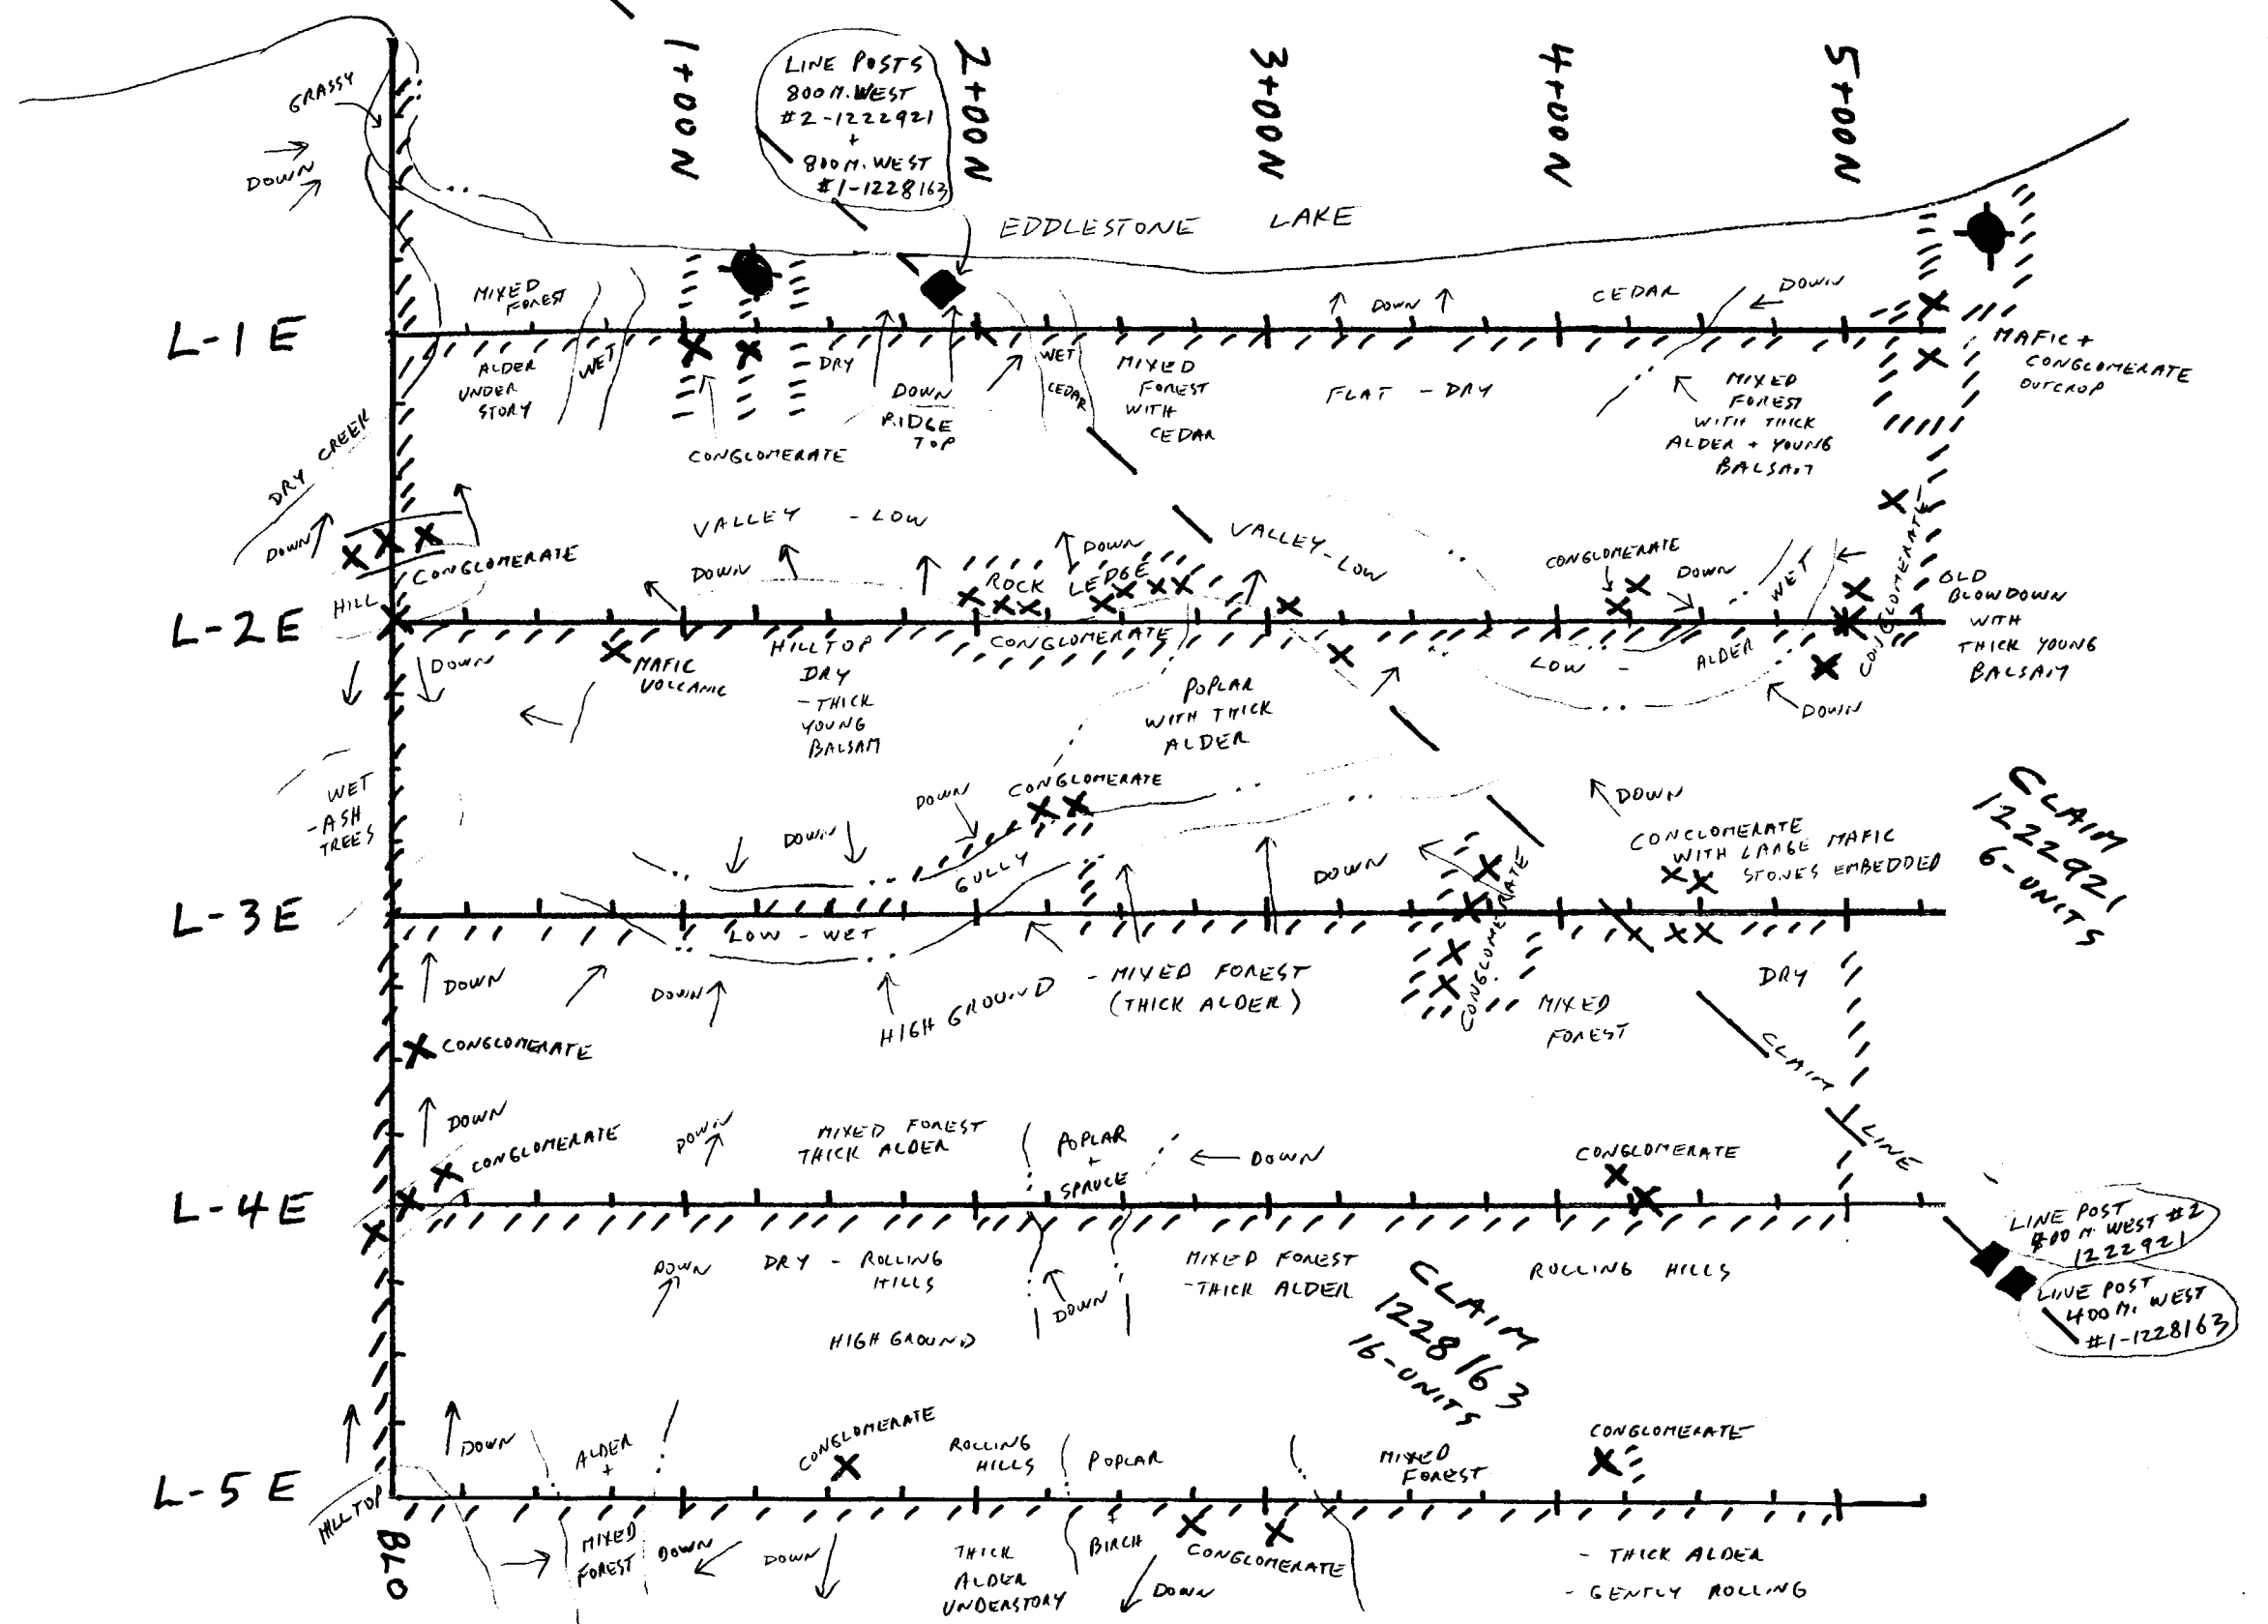 1+00N
2+00N
3+00N
4+00N
5+00N
LINE POSTS
800 M. WEST
#2-1222921
+
800 M. WEST
#1-1228163
GRASSY
DOWN
EDDLESTONE LAKE
MIXED
FOREST
DOWN
CEDAR
DOWN
L-1E
ALDER
UNDER
STORY
WET
DRY
DOWN
RIDGE
TOP
WET
CEDAR
MIXED
FOREST
WITH
CEDAR
FLAT - DRY
MIXED
FOREST
WITH THICK
ALDER + YOUNG
BALSAM
MAFIC +
CONGLOMERATE
OUTCROP
CONGLOMERATE
DRY CREEK
DOWN
CONGLOMERATE
VALLEY - LOW
DOWN
DOWN
ROCK LEDGE
VALLEY-LOW
CONGLOMERATE
DOWN
WET
CONGLOMERATE
OLD
BLOWDOWN
WITH
THICK YOUNG
BALSAM
HILL
L-2E
DOWN
MAFIC
VOLCANIC
HILLTOP
DRY
- THICK
YOUNG
BALSAM
CONGLOMERATE
POPLAR
WITH THICK
ALDER
LOW -
ALDER
DOWN
WET
-ASH
TREES
DOWN
DOWN
CONGLOMERATE
GULLY
DOWN
CONGLOMERATE
DOWN
CONCLOMERATE
WITH LARGE MAFIC
STONES EMBEDDED
CLAIM
1222921
6-UNITS
L-3E
LOW - WET
DOWN
DOWN
HIGH GROUND
- MIXED FOREST
(THICK ALDER)
MIXED
FOREST
DRY
CLAIM LINE
CONGLOMERATE
DOWN
CONGLOMERATE
DOWN
MIXED FOREST
THICK ALDER
POPLAR
+
SPRUCE
DOWN
CONGLOMERATE
L-4E
DOWN
DRY - ROLLING
HILLS
HIGH GROUND
DOWN
MIXED FOREST
-THICK ALDER
ROLLING HILLS
LINE POST
800 M. WEST #2
1222921
LINE POST
400 M. WEST
#1-1228163
CLAIM
1228163
16-UNITS
DOWN
ALDER
+
CONGLOMERATE
ROLLING
HILLS
POPLAR
MIXED
FOREST
CONGLOMERATE
L-5E
HILLTOP
BLO
MIXED
FOREST
DOWN
DOWN
THICK
ALDER
UNDERSTORY
+
BIRCH
DOWN
CONGLOMERATE
- THICK ALDER
- GENTLY ROLLING